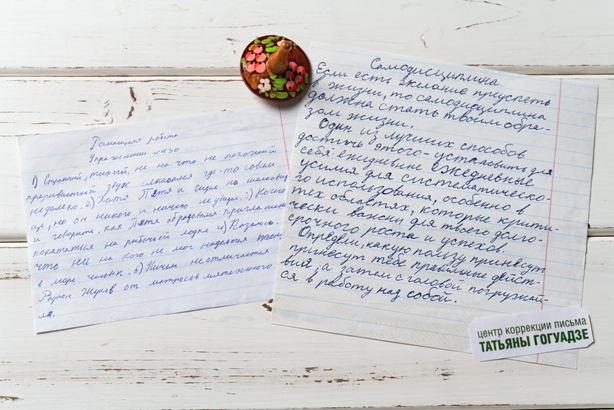 Домашняя работа
Упражнение №20
1) Странный, тихий, не на что не похожий
прерывистый звук слышался где-то совсем
недалеко. 2) Хотя Петя и сидел на
ще, но он никого и ничего не увидел. 3) Нечего
и говорить, как Петя обрадовался приглашению
покататься на рыбачьей лодке 4) Казалось,
что ней не кого не мог надеяться
в мире человек. 5) Ничем не отличается
Родион Жуков от матросов мятежного
ля.
Самодисциплина.
Если есть желание приуспеть
в жизни, то самодисциплина
должна стать твоим обра-
зом жизни.
Один из лучших способов
достичь этого - установить для
себя ежедневные ежедневные
усилия для систематическо-
го использования, особенно в
тех областях, которые крити-
чески важны для твоего долго-
срочного роста и успехов.
Определи, какую пользу принесут
принесут тебе правильные дейст-
вия, а затем с головой погружай-
ся в работу над собой.
центр коррекции письма
ТАТЬЯНЫ ГОГУАДЗЕ